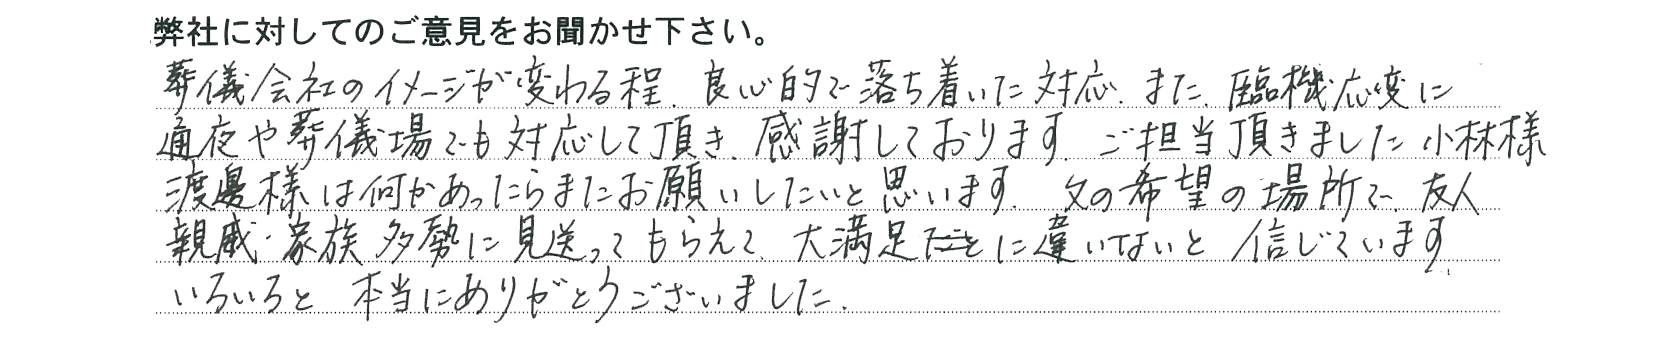 弊社に対してのご意見をお聞かせ下さい。
葬儀会社のイメージが変わる程、良心的で落ち着いた対応、また、臨機応変に
通夜や葬儀場でも対応して頂き、感謝しております。ご担当頂きました小林様
渡邊様は何かあったらまたお願いしたいと思います。父の希望の場所で、友人
親戚・家族多勢に見送ってもらえて、大満足だことに違いないと信じています。
いろいろと本当にありがとうございました。